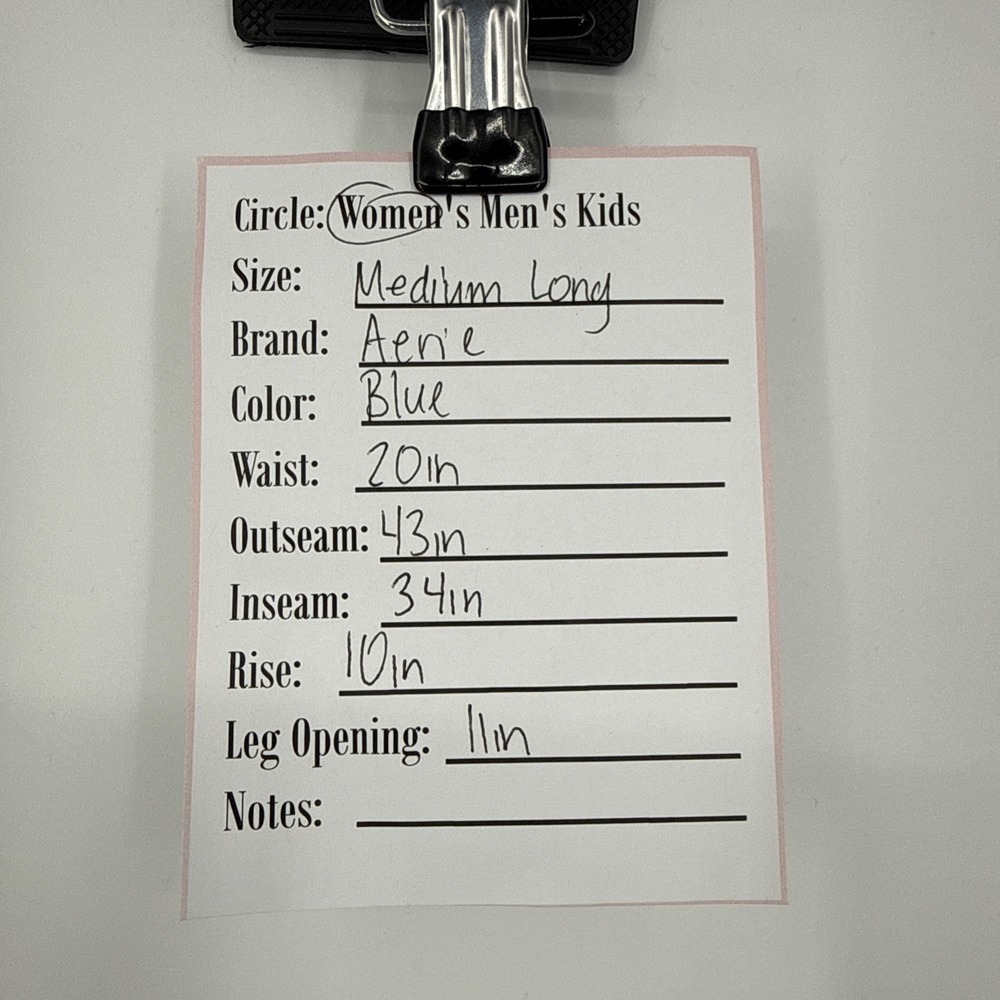 Circle: Women's Men's Kids
Size: Medium Long
Brand: Aerie
Color: Blue
Waist: 20in
Outseam: 43in
Inseam: 34in
Rise: 10in
Leg Opening: 11in
Notes: